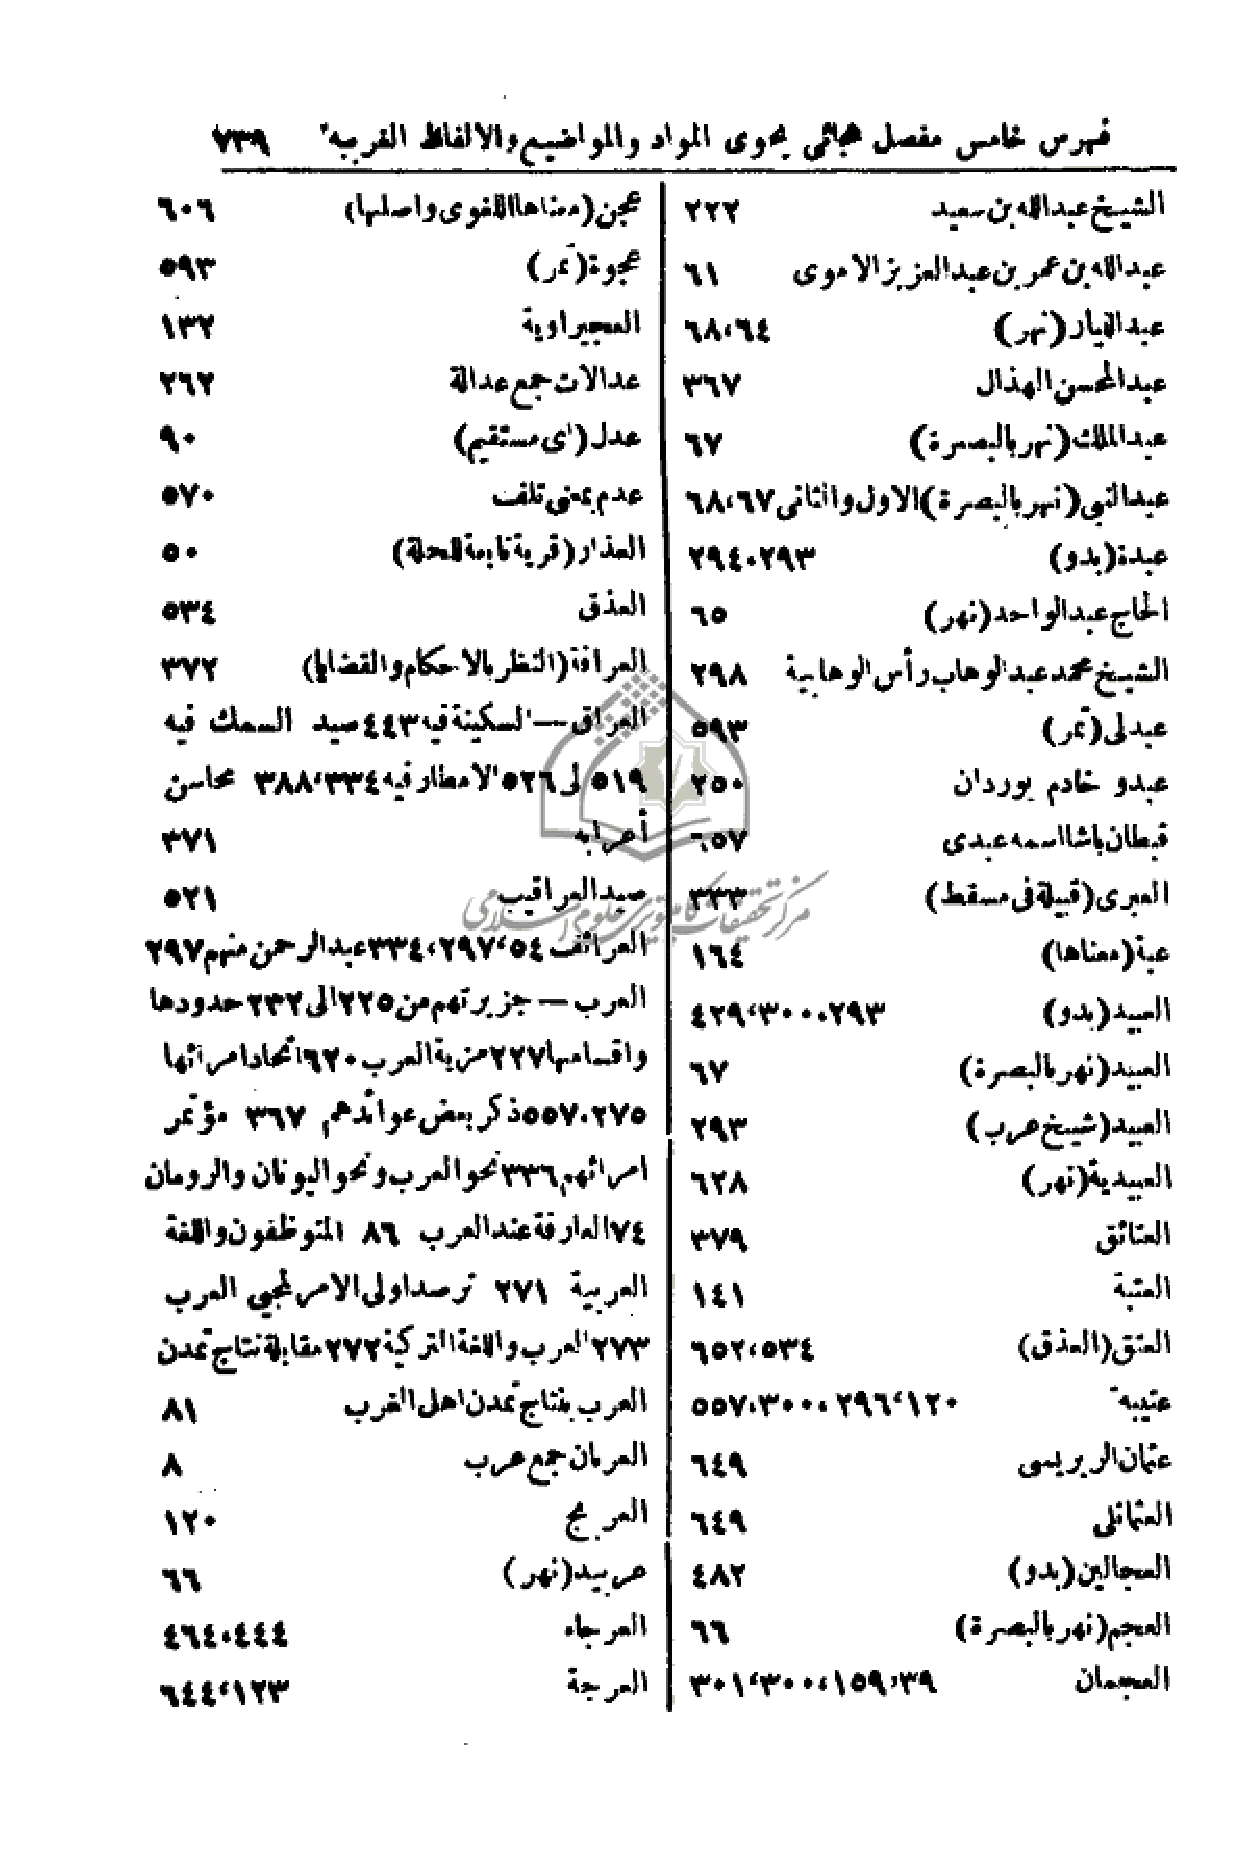 فهرس خامس مفصل هجائي يحوى المواد والمواضيع والالفاظ الغريبة ٧٣٩
الشيخ عبدالله بن سعيد ٢٢٢
عبدالله بن عمر بن عبدالعزيز الاموى ٦١
عبداليار (نهر) ٦٨،٦٤
عبدالمحسن الهذال ٣٦٧
عبدالملك (نهر بالبصرة) ٦٧
عبدالنبي (نهر بالبصرة) الاول والثانى ٦٨،٦٧
عبدة (بدو) ٢٩٤،٢٩٣
الحاج عبدالواحد (نهر) ٦٥
الشيخ محمد عبدالوهاب رأس الوهابية ٢٩٨
عبدلى (تمر) ٥٩٣
عبدو خادم بوردان ٢٥٠
قبطان باشا اسمه عبدى ٦٥٧
العبرى (قبيلة فى مسقط) ٣٣٣
عبة (معناها) ١٦٤
العبيد (بدو) ٤٢٩،٣٠٠،٢٩٣
العبيد (نهر بالبصرة) ٦٧
العبيد (شيخ عرب) ٢٩٣
العبيدية (نهر) ٦٢٨
العتائق ٣٧٩
العتبة ١٤١
العتق (العذق) ٦٥٢،٥٣٤
عتيبة ٥٥٧،٣٠٠،٢٩٦،١٢٠
عثمان الربريسى ٦٤٩
العثمانلى ٦٤٩
العجالين (بدو) ٤٨٢
العجم (نهر بالبصرة) ٦٦
العجمان ٣٠١،٣٠٠،١٥٩،٣٩
عجن (معناها اللغوى واصلها) ٦٠٦
عجوة (تمر) ٥٩٣
العجيراوية ١٣٢
عدالات جمع عدالة ٢٦٢
عدل (اى مستقيم) ٩٠
عدم بمعنى تلف ٥٧٠
العذار (قرية تابعة للحلة) ٥٠
العذق ٥٣٤
العرافة (النظر بالاحكام والقضايا) ٣٧٢
العراق — السكينة فيه ٤٤٣ صيد السمك فيه
٥١٩ الى ٥٢٦ الامطار فيه ٣٨٨،٣٣٤ محاسن
أعرابه ٣٧١
صيد العراقيب ٥٢١
العرائف ٣٣٤،٢٩٧،٥٤ عبدالرحمن منهم ٢٩٧
العرب — جزيرتهم من ٢٢٥ الى ٢٣٢ حدودها
واقسامها ٢٢٧ مزية العرب ٦٢٠ اتحاد امرائها
٥٥٧،٢٧٥ ذكر بعض عوائدهم ٣٦٧ مؤتمر
امرائهم ٣٣٦ نحو العرب ونحو اليونان والرومان
٧٤ العارفة عند العرب ٨٦ المتوظفون واللغة
العربية ٢٧١ ترصد اولى الامر لمحبي العرب
٢٧٣ العرب واللغة التركية ٢٧٢ مقابلة نتاج تمدن
العرب بنتاج تمدن اهل الغرب ٨١
العربان جمع عرب ٨
العربج ١٢٠
عربيد (نهر) ٦٦
العرجاء ٤٦٤،٤٤٤
العرجة ٦٤٤،١٢٣
مركز تحقيقات كامپيوتری علوم اسلامی